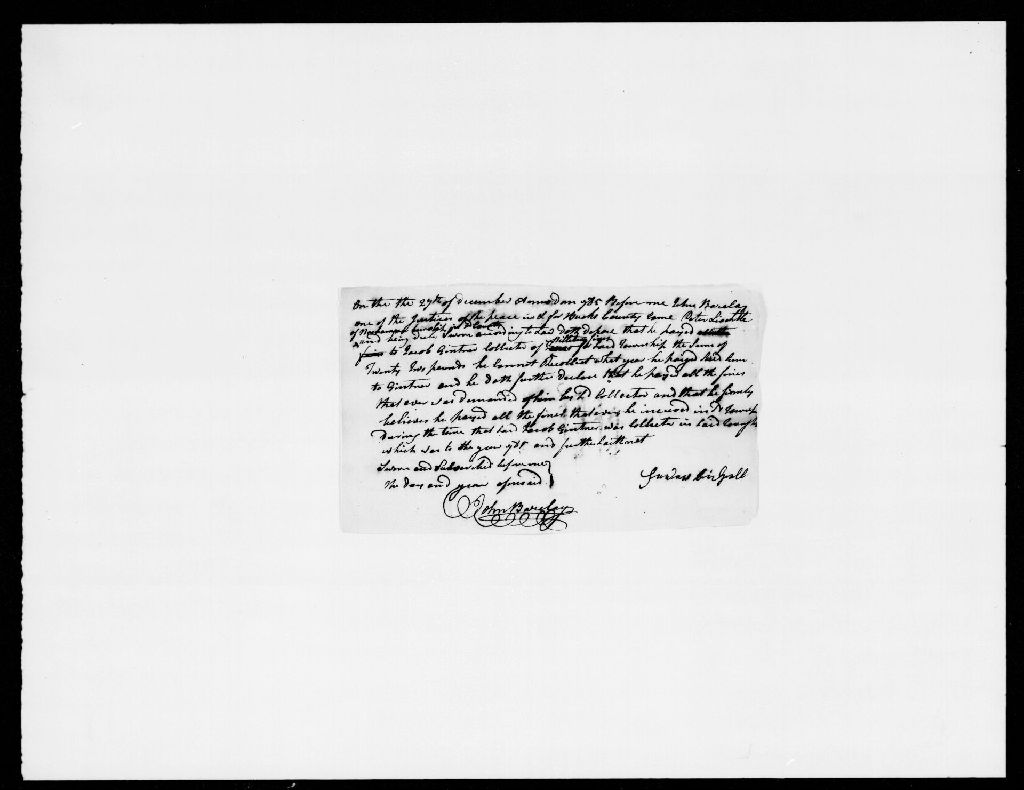 On the the 29th of december Annod on 985 Before me John Barclay
one of the Justices of the peace in & for Bucks County Came Peter
of township & County
and being duly Sworn according to law doth depose that he payed
fines to Jacob Gintner Collector of Millitary fines for Said Township the Sume of
Twenty two pounds he Cannot Recollect what year he payed Said Sum
to Gintner and he doth further declare that he payed all the fines
that ever was demanded of him by sd Collector and that he firmly
believes he payed all the fines that ever he incured in sd Township
During the time that Said Jacob Gintner was Collector in Said township
which was to the year and further Saith not
Sworn and Subscribed before me
the day and year aforesaid
John Barclay